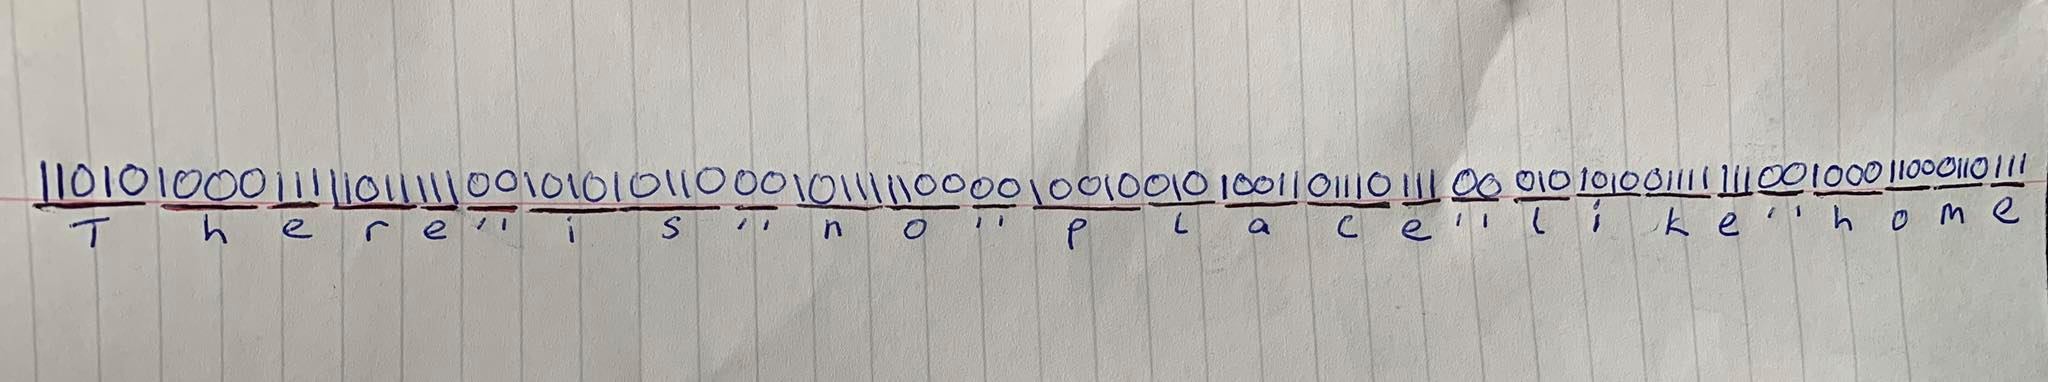 110101000111110111110010101011000101111100001001001010011011101110001010100111111100100011000110111
T h e r e '' i s '' n o '' p l a c e '' l i k e '' h o m e